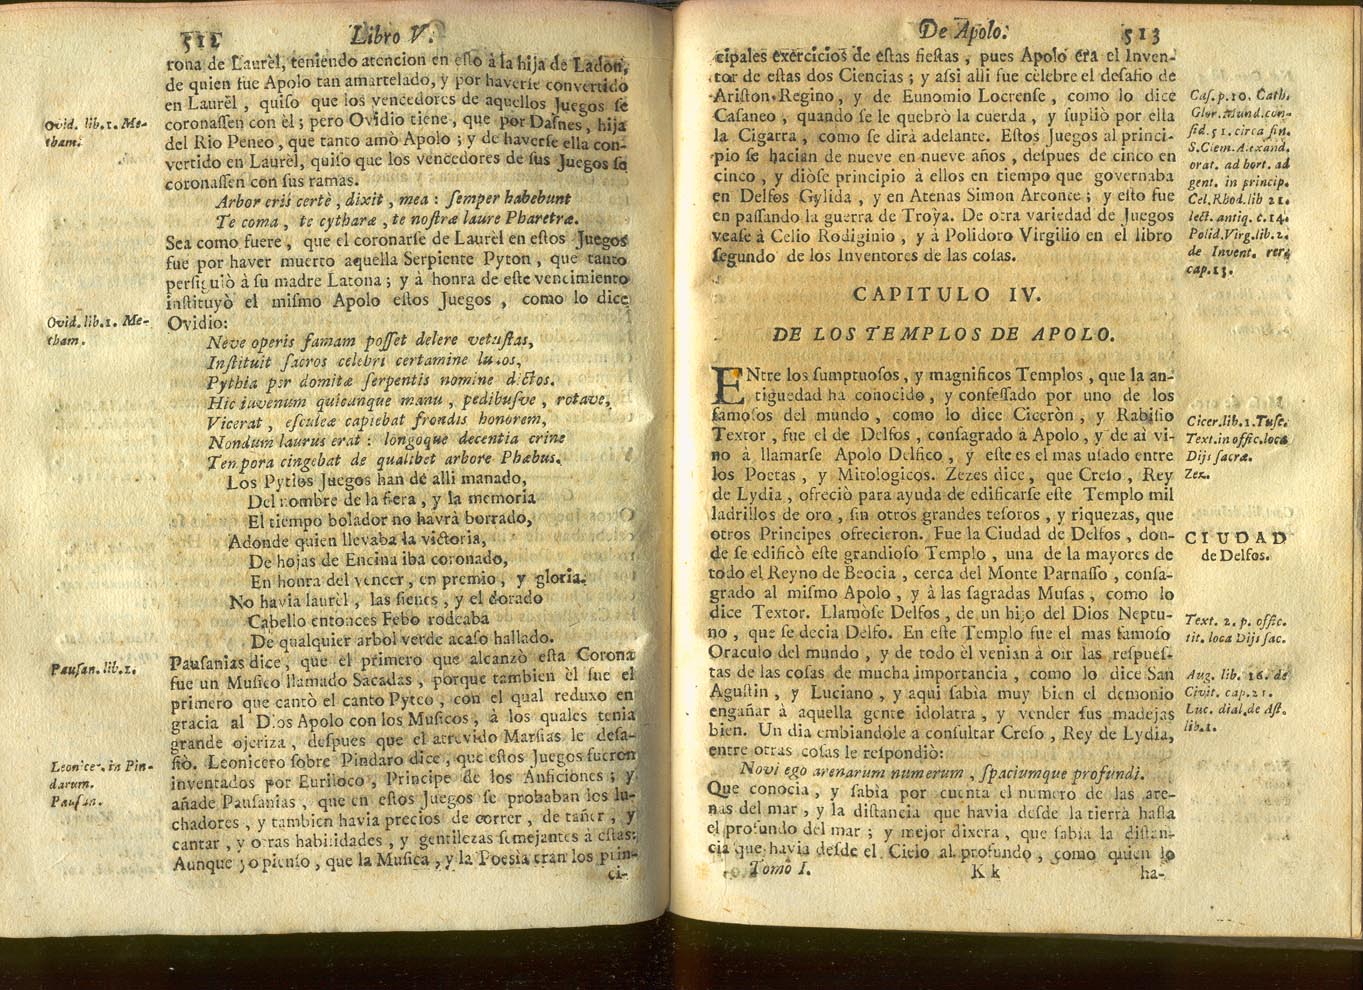 512 Libro V.
rona de Laurèl, teniendo atencion en esto à la hija de Ladon,
de quien fue Apolo tan amartelado, y por haverse convertido
en Laurèl, quiso que los vencedores de aquellos Juegos se
coronassen con èl; pero Ovidio tiene, que por Dafnes, hija
del Rio Peneo, que tanto amò Apolo; y de haverse ella con-
vertido en Laurèl, quiso que los vencedores de sus Juegos se
coronassen con sus ramas.
Ovid. lib. 1. Me-
tham.
Arbor eris certè, dixit, mea: semper habebunt
Te coma, te cytharæ, te nostræ laure Pharetræ.
Sea como fuere, que el coronarse de Laurèl en estos Juegos
fue por haver muerto aquella Serpiente Pyton, que tanto
persiguiò à su madre Latona; y à honra de este vencimiento
instituyò el mismo Apolo estos Juegos, como lo dice
Ovidio:
Ovid. lib. 1. Me-
tham.
Neve operis famam posset delere vetustas,
Instituit sacros celebri certamine lu.os,
Pythia per domitæ serpentis nomine dictos.
Hic iuvenum quicunque manu, pedibusve, rotave,
Vicerat, esculeæ capiebat frondis honorem,
Nondum laurus erat: longoque decentia crine
Tempora cingebat de qualibet arbore Phæbus.
Los Pytios Juegos han de alli manado,
Del nombre de la fiera, y la memoria
El tiempo bolador no havrà borrado,
Adonde quien llevaba la victoria,
De hojas de Encina iba coronado,
En honra del vencer, en premio, y gloria.
No havia laurèl, las sienes, y el dorado
Cabello entonces Febo rodeaba
De qualquier arbol verde acaso hallado.
Pausanias dice, que el primero que alcanzò esta Corona
fue un Musico llamado Sacadas, porque tambien èl fue el
primero que cantò el canto Pyteo, con el qual reduxo en
gracia al Dios Apolo con los Musicos, à los quales tenia
grande ojeriza, despues que el atrevido Marsias le desa-
fiò. Leonicero sobre Pindaro dice, que estos Juegos fueron
inventados por Euriloco, Principe de los Anficiones; y
añade Pausanias, que en estos Juegos se probaban los lu-
chadores, y tambien havia precios de correr, de tañer, y
cantar, y otras habilidades, y gentilezas semejantes à estas:
Aunque yo pienso, que la Musica, y la Poesia eran los prin-
ci-
Pausan. lib. 1.
Leonicer. in Pin-
darum.
Pausan.
De Apolo. 513
cipales exercicios de estas fiestas, pues Apolo era el Inven-
tor de estas dos Ciencias; y assi alli fue cèlebre el desafio de
Ariston Regino, y de Eunomio Locrense, como lo dice
Casaneo, quando se le quebrò la cuerda, y supliò por ella
la Cigarra, como se dirà adelante. Estos Juegos al princi-
pio se hacian de nueve en nueve años, despues de cinco en
cinco, y diòse principio à ellos en tiempo que governaba
en Delfos Gylida, y en Atenas Simon Arconte; y esto fue
en passando la guerra de Troya. De otra variedad de Juegos
vease à Celio Rodiginio, y à Polidoro Virgilio en el libro
segundo de los Inventores de las cosas.
Cas. p. 10. Cath.
Glor. Mund. con-
sid. 51. circa fin.
S. Clem. Alexand.
orat. ad hort. ad
gent. in princip.
Cel. Rhod. lib 21.
lect. antiq. c. 14.
Polid. Virg. lib. 2.
de Invent. rer.
cap. 13.
CAPITULO IV.
DE LOS TEMPLOS DE APOLO.
ENtre los sumptuosos, y magnificos Templos, que la an-
tiguedad ha conocido, y confessado por uno de los
famosos del mundo, como lo dice Ciceròn, y Rabisio
Textor, fue el de Delfos, consagrado à Apolo, y de ai vi-
no à llamarse Apolo Delfico, y este es el mas usado entre
los Poetas, y Mitologicos. Zezes dice, que Creso, Rey
de Lydia, ofreciò para ayuda de edificarse este Templo mil
ladrillos de oro, sin otros grandes tesoros, y riquezas, que
otros Principes ofrecieron. Fue la Ciudad de Delfos, don-
de se edificò este grandioso Templo, una de la mayores de
todo el Reyno de Beocia, cerca del Monte Parnasso, consa-
grado al mismo Apolo, y à las sagradas Musas, como lo
dice Textor. Llamòse Delfos, de un hijo del Dios Neptu-
no, que se decia Delfo. En este Templo fue el mas famoso
Oraculo del mundo, y de todo èl venian à oìr las respues-
tas de las cosas de mucha importancia, como lo dice San
Agustin, y Luciano, y aqui sabìa muy bien el demonio
engañar à aquella gente idolatra, y vender sus madejas
bien. Un dia embiandole à consultar Creso, Rey de Lydia,
entre otras cosas le respondiò:
Novi ego arenarum numerum, spaciumque profundi.
Que conocia, y sabìa por cuenta el numero de las are-
nas del mar, y la distancia que havia desde la tierra hasta
el profundo del mar; y mejor dixera, que sabìa la distan-
cia que havia desde el Cielo al profundo, como quien lo
Tomo I. Kk ha-
Cicer. lib. 1. Tusc.
Text. in offic. loca
Dijs sacra.
Zez.
CIUDAD
de Delfos.
Text. 2. p. offic.
tit. loca Dijs sac.
Aug. lib. 16. de
Civit. cap. 21.
Luc. dial. de Ast.
lib. 1.